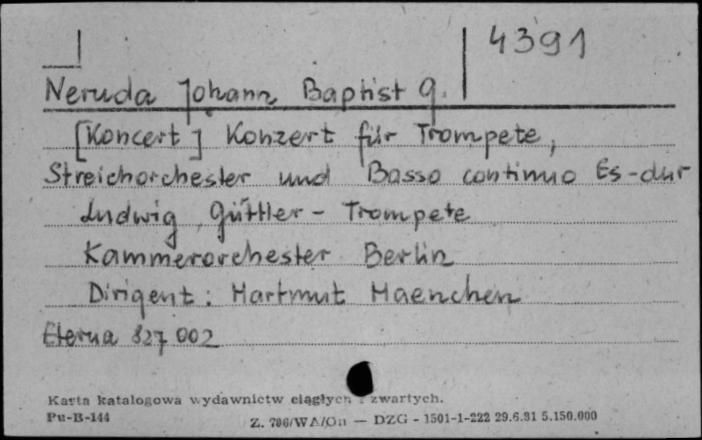 4391
Neruda Johann Baptist G.
[Koncert] Konzert für Trompete,
Streichorchester und Basso continuo Es-dur
Ludwig Güttler - Trompete
Kammerorchester Berlin
Dirigent: Hartmut Haenchen
Eterna 827 002
Karta katalogowa wydawnictw ciągłych i zwartych.
Pu-B-144
Z. 786/WA/On — DZG - 1501-1-222 29.6.81 5.150.000